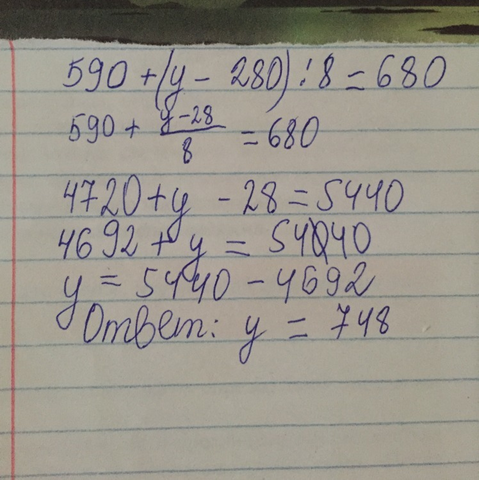 590 + (y - 280) : 8 = 680
590 + y-28/8 = 680
4720 + y - 28 = 5440
4692 + y = 54040
y = 5440 - 4692
Ответ: y = 748